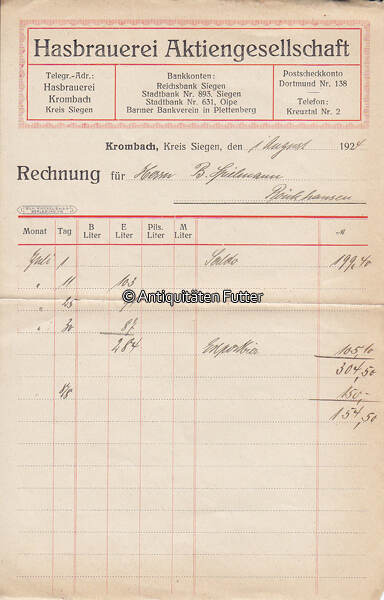 Hasbrauerei Aktiengesellschaft
Telegr.-Adr.:
Hasbrauerei
Krombach
Kreis Siegen
Bankkonten:
Reichsbank Siegen
Stadtbank Nr. 893, Siegen
Stadtbank Nr. 631, Olpe
Barmer Bankverein in Plettenberg
Postscheckkonto
Dortmund Nr. 138
Telefon:
Kreuztal Nr. 2
Krombach, Kreis Siegen, den 1 August 1924
Rechnung für Herrn B. Spielmann
Rönkhausen
Monat Tag B Liter E Liter Pils. Liter M Liter M
Juli 1 Saldo 199,40
" 11 103
© Antiquitäten Futter
" 25
" 30 87
284 Exportbier 105,10
304,50
1/8 150,-
154,50